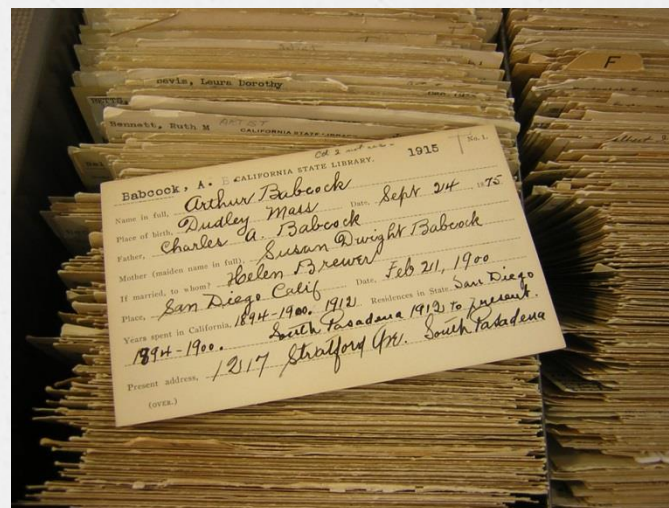 Bevis, Leura Dorothy
Bennett, Ruth M ARTIST
CALIFORNIA STATE LIBRARY
F
Babcock, A. CALIFORNIA STATE LIBRARY. 1915 No. 1.
Name in full, Arthur Babcock
Place of birth, Dudley Mass Date, Sept 24 1875
Father, Charles A. Babcock
Mother (maiden name in full) Susan Dwight Babcock
If married, to whom? Helen Brewer
Place, San Diego Calif Date, Feb 21, 1900
Years spent in California, 1894-1900. 1912 Residences in State, San Diego
1894-1900. South Pasadena 1912 to present.
Present address, 1217 Stratford Ave. South Pasadena
(OVER.)